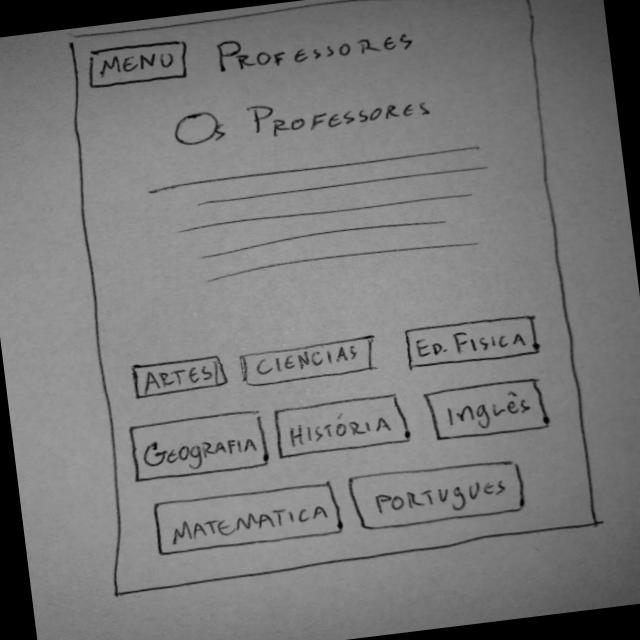 MENU PROFESSORES
Os PROFESSORES
ARTES CIENCIAS ED. FÍSICA
GEOGRAFIA HISTÓRIA Inglês
MATEMATICA PORTUGUES